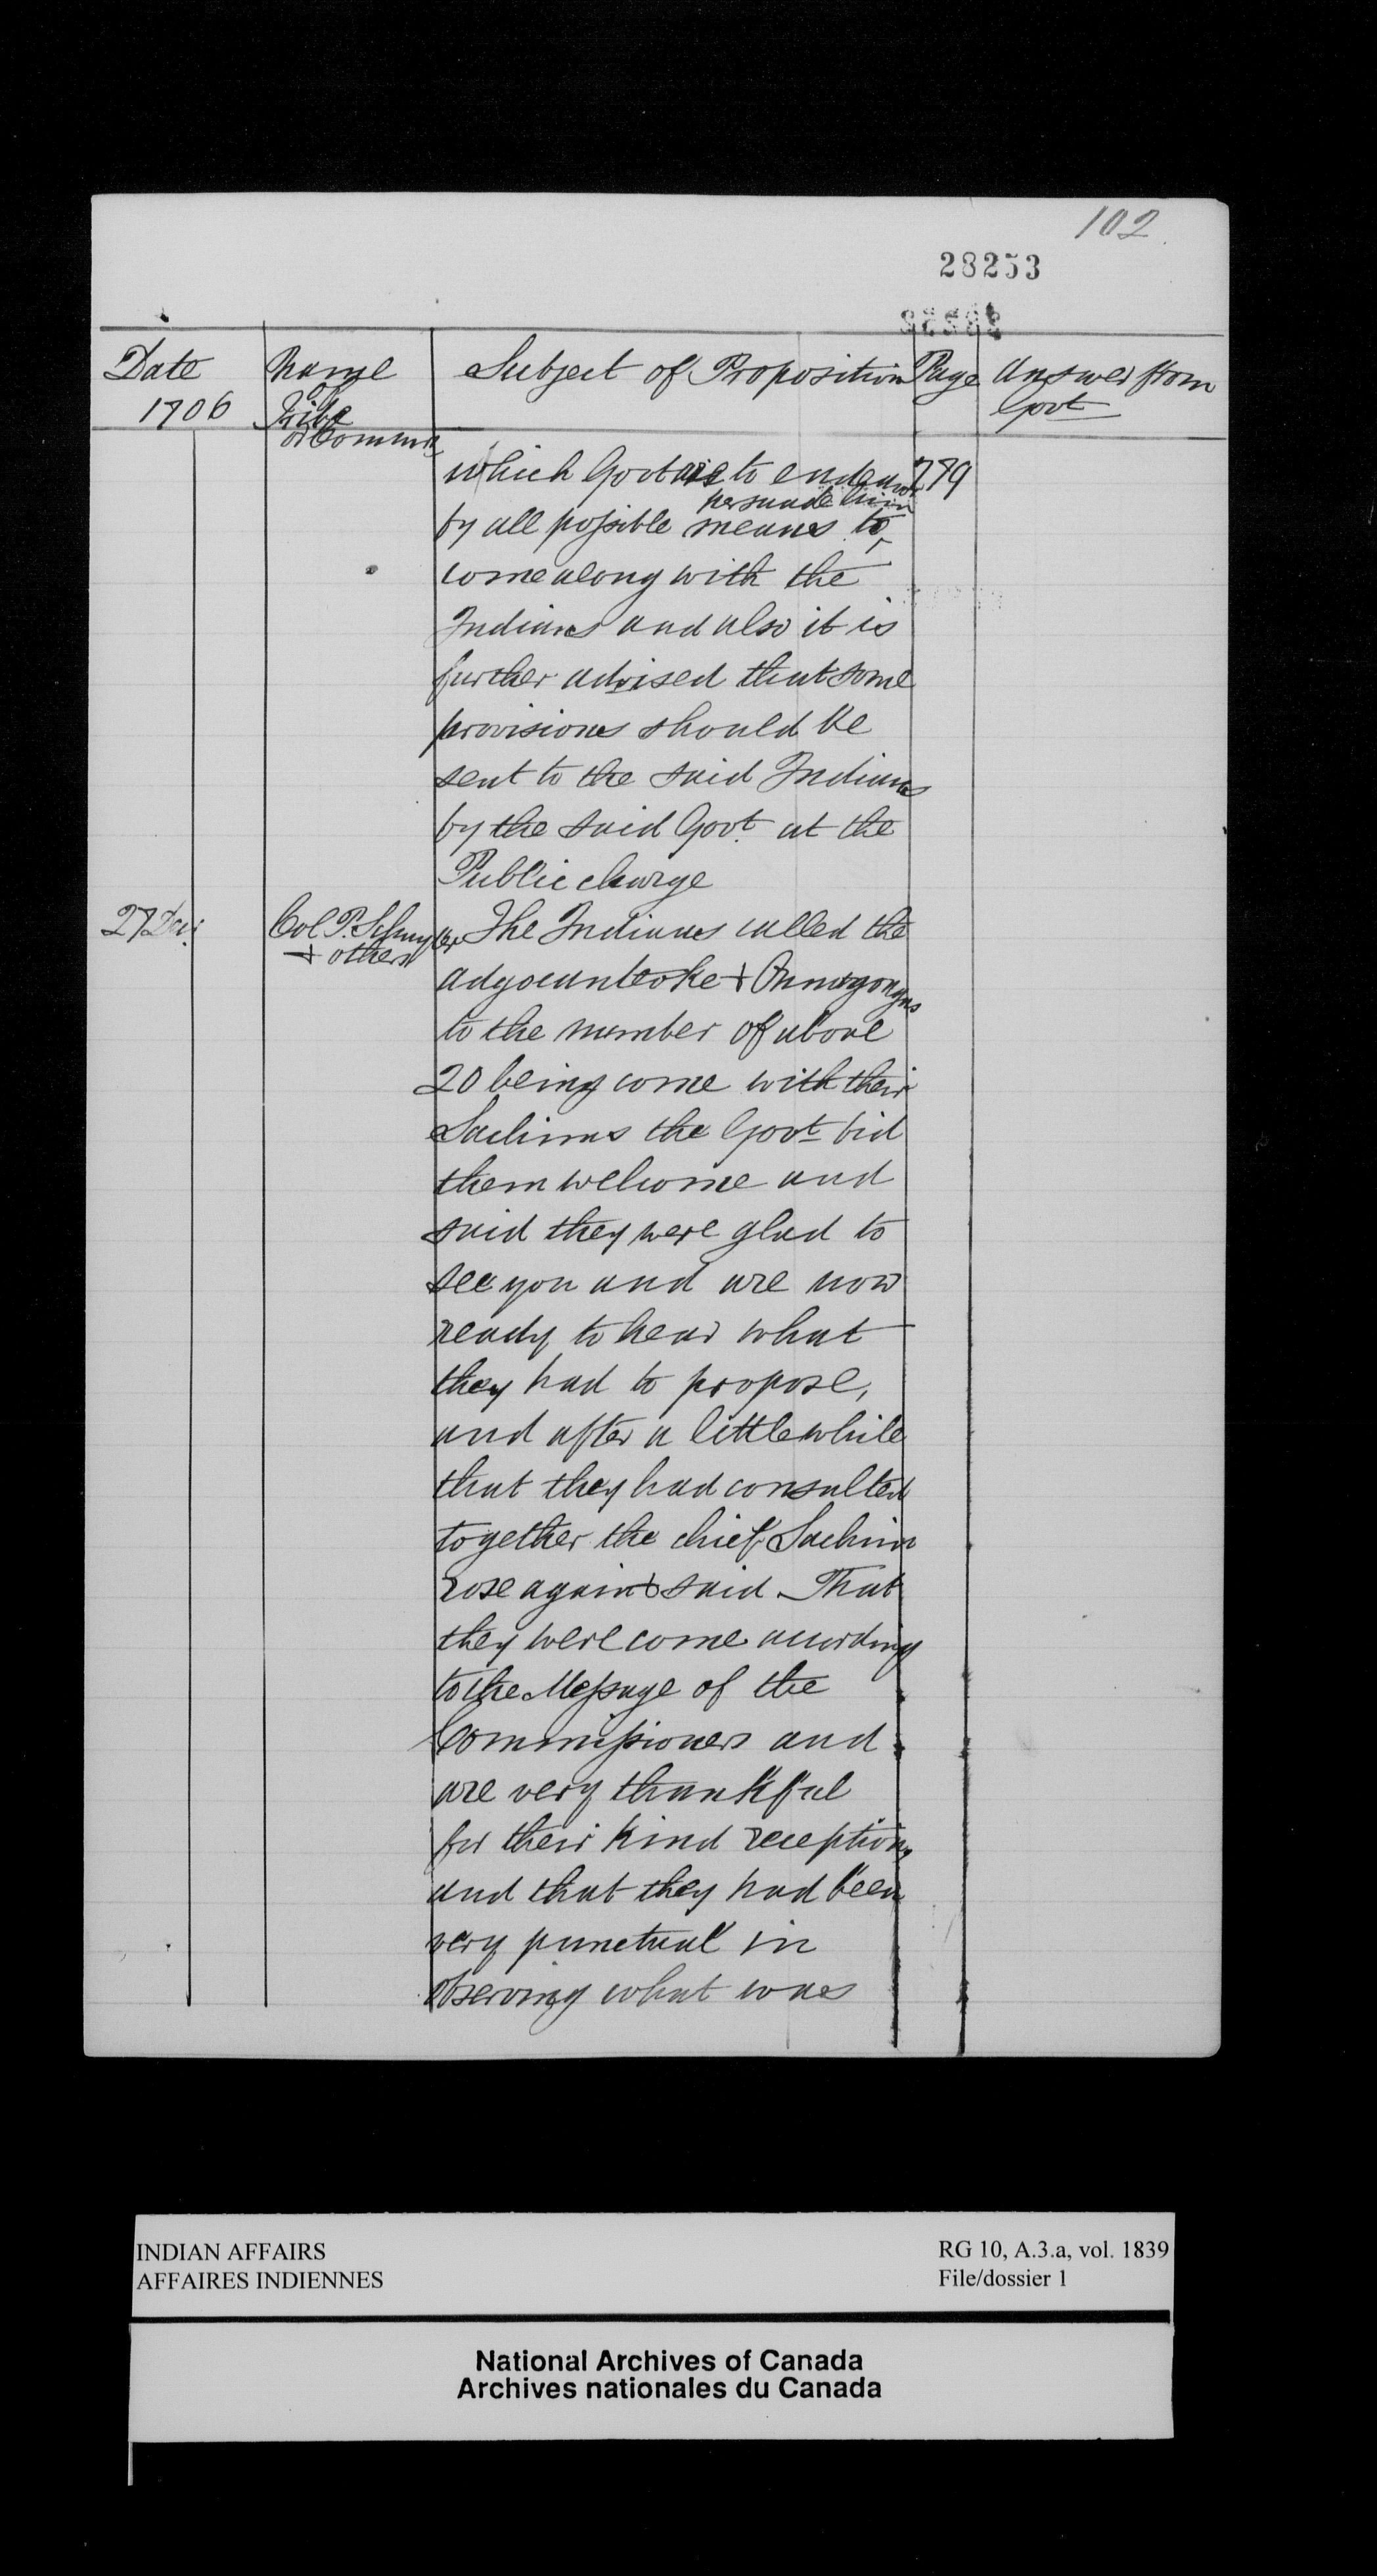 102
28253
Date
1706
Name
of
Tribe
or Commrs
Subject of Proposition
Page
Answer from
Govt
which Govt are to endeavor
779
persuade him
by all possible means to
come along with the
Indians and also it is
further advised that some
provisions should be
sent to the said Indians
by the said Govt at the
Public charge
27 Dec
Col P. Schuyler
& others
The Indians called the
adgocuntoke & Onnogongas
to the number of above
20 being come with their
Sachims the Govt bid
them welcome and
said they were glad to
see you and are now
ready to hear what
they had to propose,
and after a little while
that they had consulted
together the chief Sachim
rose again & said. That
they were come according
to the Message of the
Commissioners and
are very thankful
for their kind reception,
and that they had been
very punctual in
observing what was
INDIAN AFFAIRS
AFFAIRES INDIENNES
RG 10, A.3.a, vol. 1839
File/dossier 1
National Archives of Canada
Archives nationales du Canada